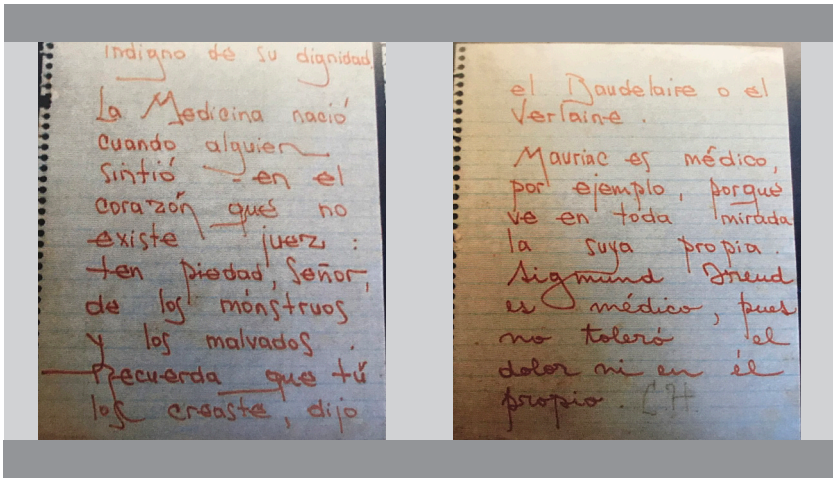 Indigno de su dignidad.
La Medicina nació
cuando alguien
sintió - en el
corazón qué no
existe juez:
ten piedad, Señor,
de los mónstruos
y los malvados.
Recuerda que tú
los creaste, dijo
el Baudelaire o el
Verlaine.
Mauriac es médico,
por ejemplo, porqué
ve en toda mirada
la suya propia.
Sigmund Freud
es médico, pues
no toleró el
dolor ni en él
propio. CH